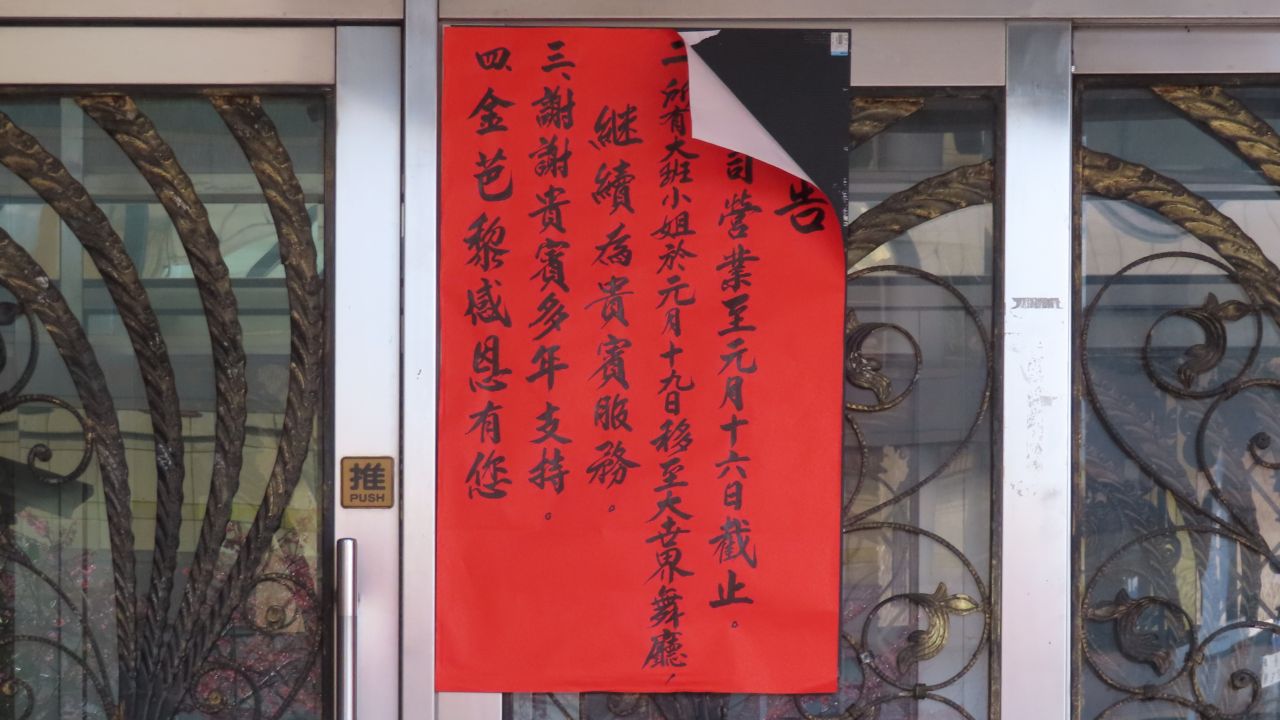 告
司營業至元月十六日截止。
二所有大班小姐於元月十九日移至大世界舞廳，
繼續為貴賓服務。
三、謝謝貴賓多年支持。
四、金芭黎感恩有您
推
PUSH